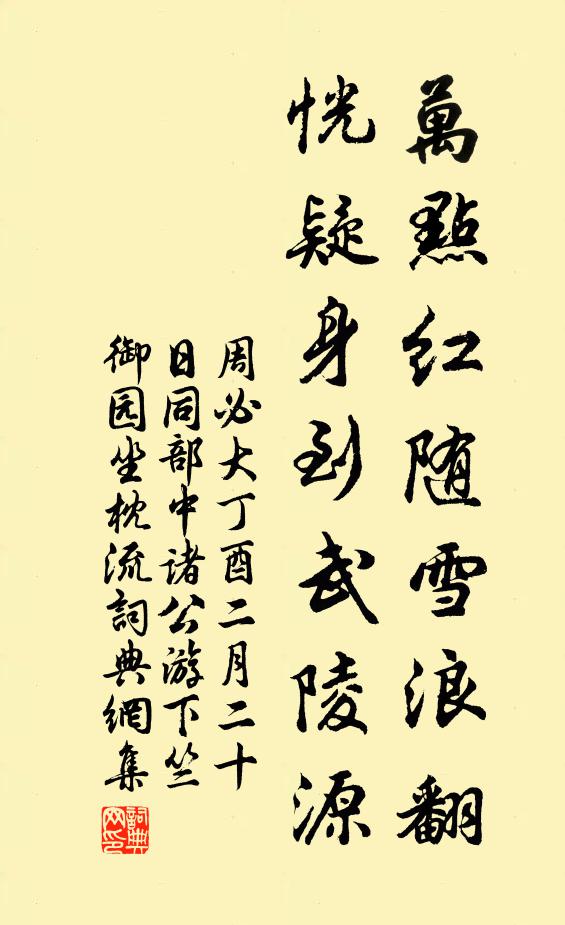 萬點红随雪浪翻
恍疑身到武陵源
周必大丁酉二月二十
日同部中诸公游下竺
御园坐枕流詞典網集
詞典网印